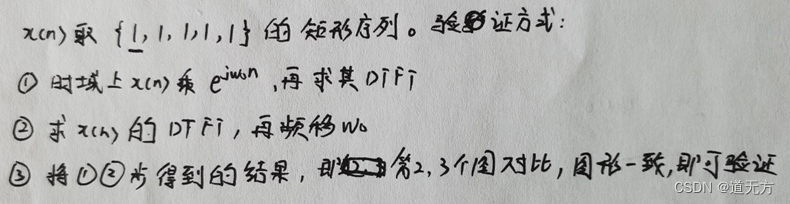 x(n)取{1,1,1,1,1}的矩形序列。验证方式:
① 时域上x(n)乘e^{jω₀n},再求其DTFT
② 求x(n)的DTFT,再频移W₀
③ 将①②步得到的结果,即第2,3个图对比,图形一致,即可验证
CSDN @道无方